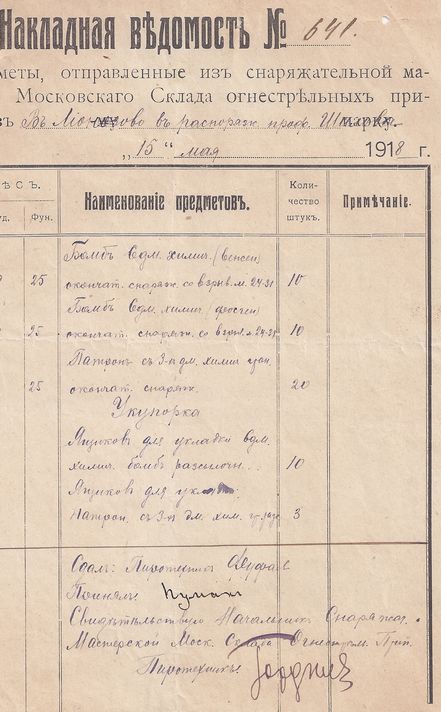 Накладная вѣдомость № 641.
меты, отправленные изъ снаряжательной ма-
Московскаго Склада огнестрѣльныхъ при-
въ распоряж. проф.
„15“ мая 1918 г.
Ѣ С Ъ.
уд. Фун.
Наименованіе предметовъ.
Коли-
чество
штукъ.
Примѣчаніе.
Бомбъ 6 дм. химич. (венсен)
25 окончат. снаряж. со взрыв. м. 24-31 10
Бомбъ 6 дм. химич. (фосген)
25 окончат. снаряж. со взрыв. м. 24-31 10
Патронъ съ 3-и дм. химич.
25 окончат. снаряж. 20
Укупорка
Ящиковъ для укладки 6 дм.
химич. бомбъ 10
Ящиковъ для
Патрон. съ 3-и дм. хим. 3
Сдалъ: Пиротехникъ
Принялъ
Свидѣтельствую Начальникъ Снаряж.
Мастерской Моск. Склада Огнестрѣл. Прип.
Пиротехникъ